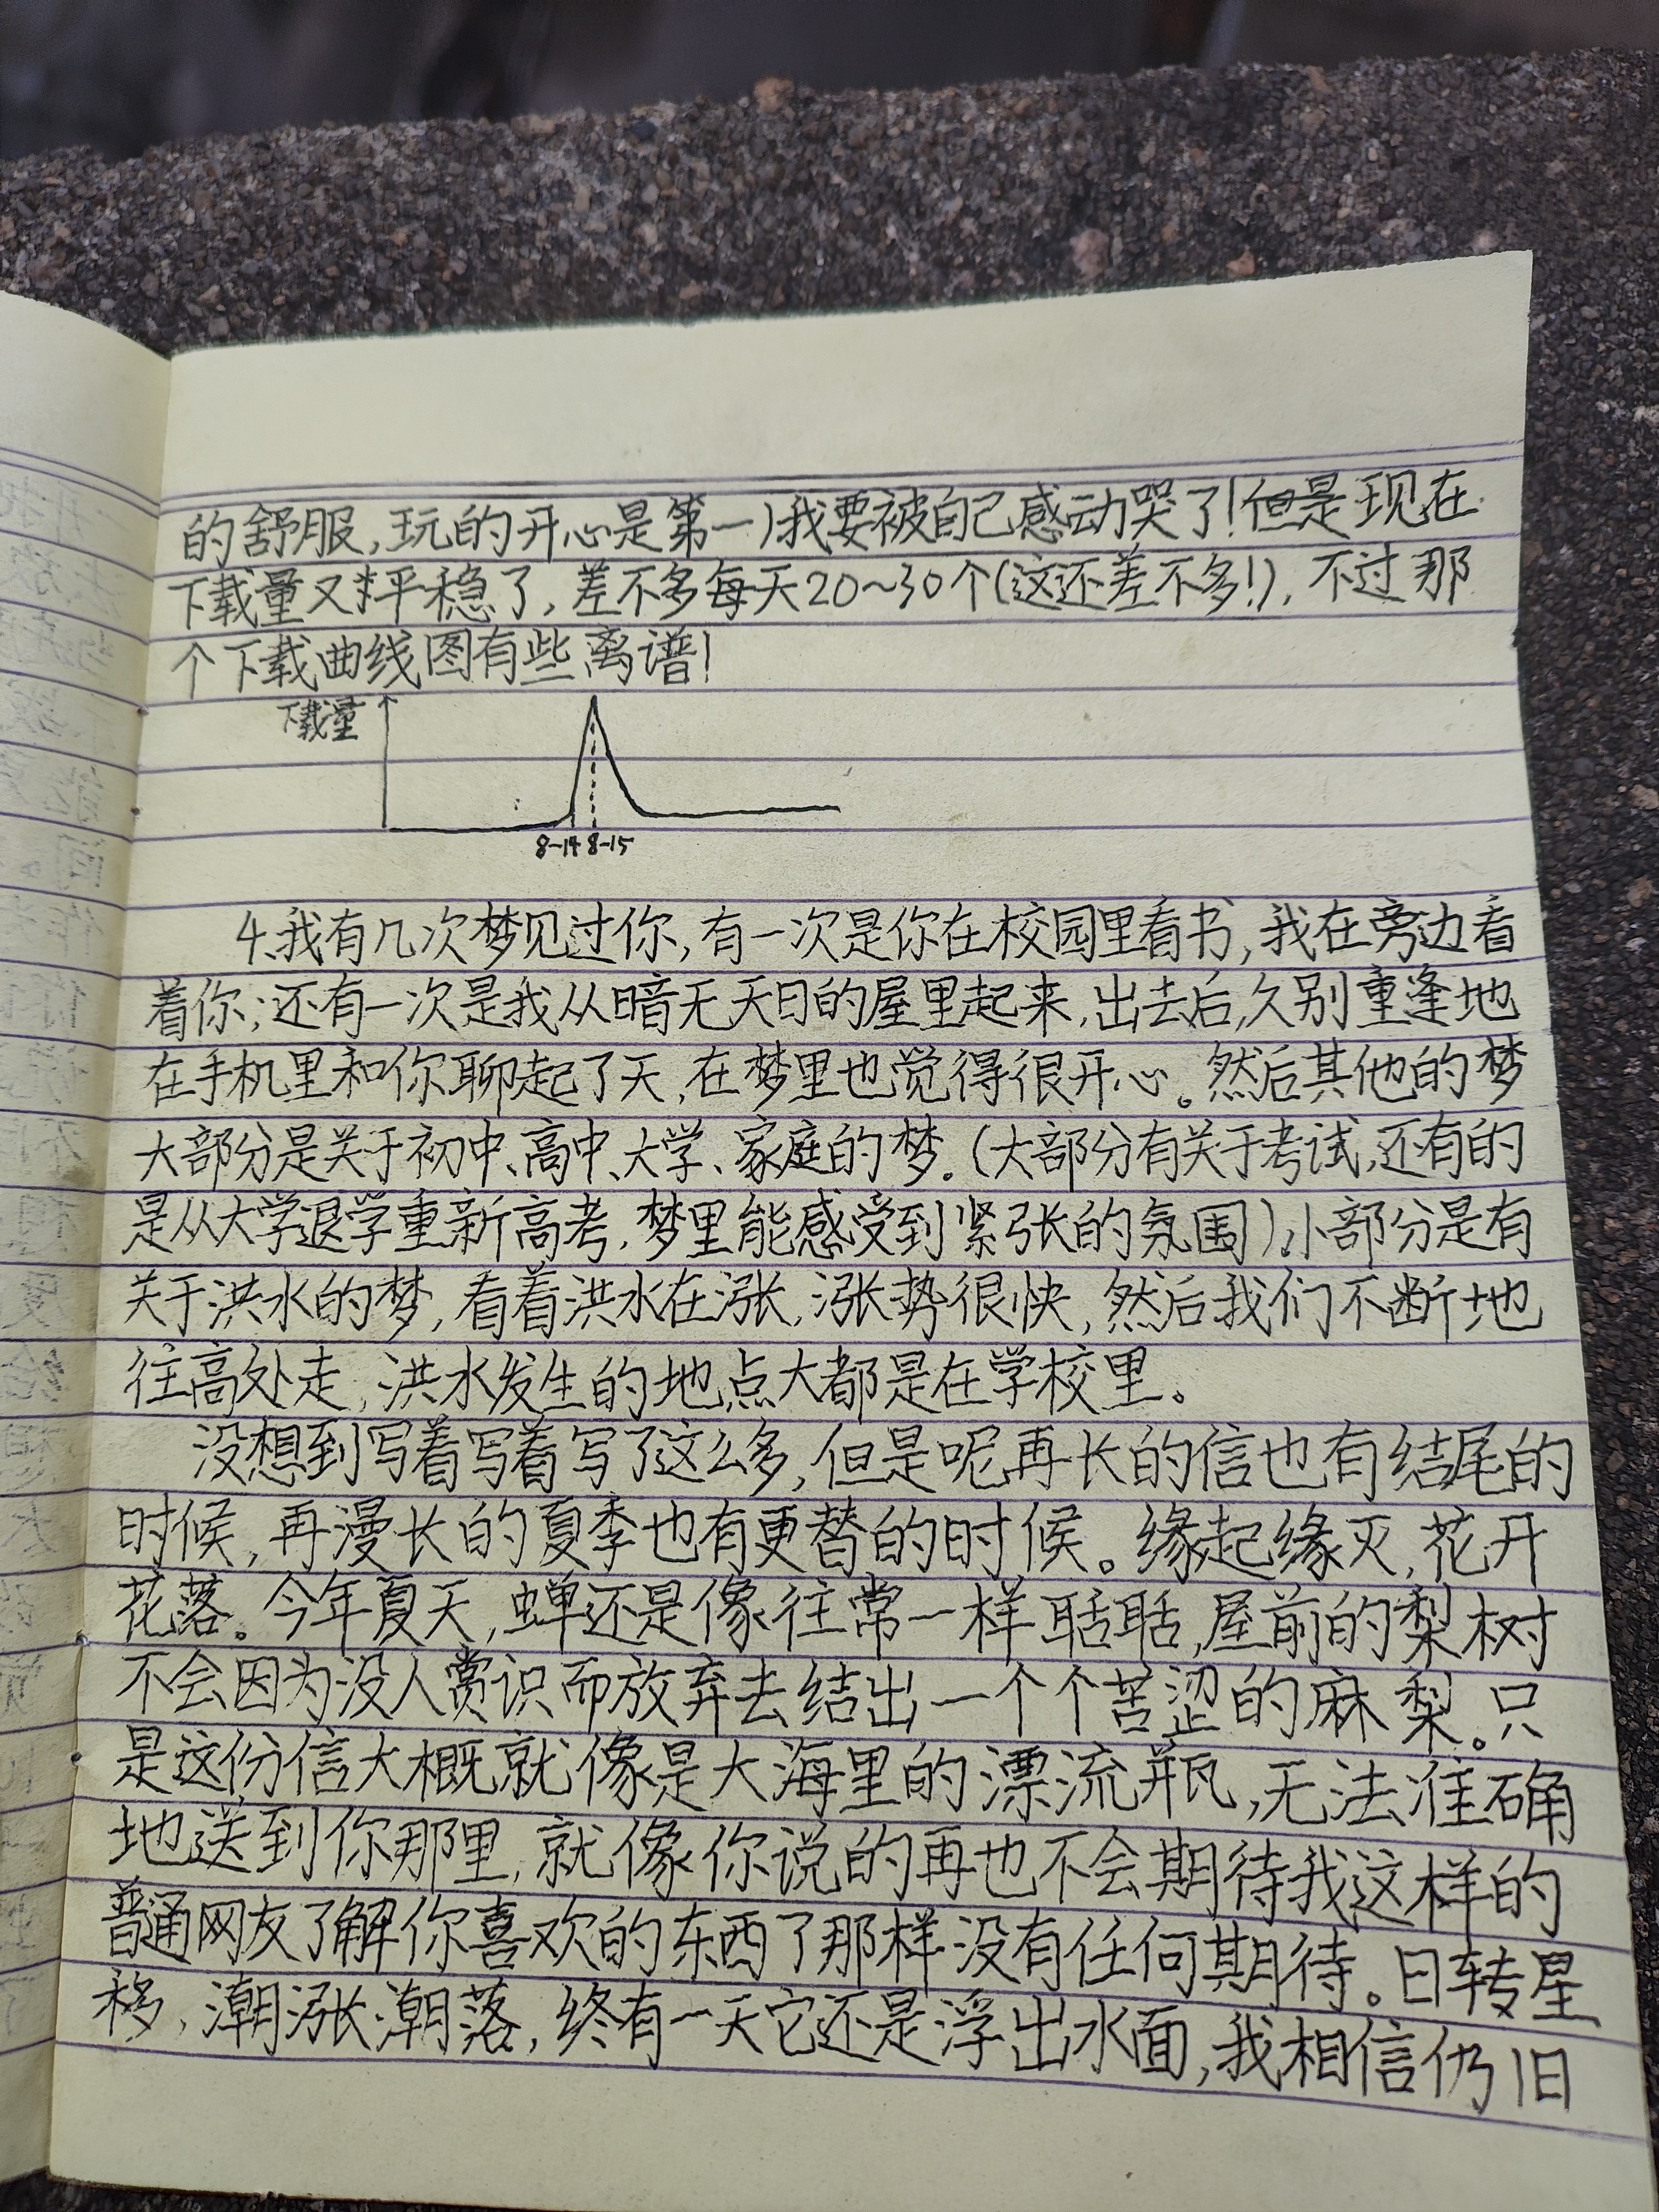 的舒服,玩的开心是第一)我要被自己感动哭了!但是现在
下载量又平稳了,差不多每天20~30个(这还差不多!),不过那
个下载曲线图有些离谱!
下载量
8-14 8-15
4.我有几次梦见过你,有一次是你在校园里看书,我在旁边看
着你;还有一次是我从暗无天日的屋里起来,出去后,久别重逢地
在手机里和你聊起了天,在梦里也觉得很开心。然后其他的梦
大部分是关于初中、高中、大学、家庭的梦。(大部分有关于考试,还有的
是从大学退学重新高考,梦里能感受到紧张的氛围),小部分是有
关于洪水的梦,看着洪水在涨,涨势很快,然后我们不断地
往高处走,洪水发生的地点大都是在学校里。
没想到写着写着写了这么多,但是呢再长的信也有结尾的
时候,再漫长的夏季也有更替的时候。缘起缘灭,花开
花落。今年夏天,蝉还是像往常一样聒聒,屋前的梨树
不会因为没人赏识而放弃去结出一个个苦涩的麻梨。只
是这份信大概就像是大海里的漂流瓶,无法准确
地送到你那里,就像你说的再也不会期待我这样的
普通网友了解你喜欢的东西了那样没有任何期待。日转星
移,潮涨潮落,终有一天它还是浮出水面,我相信仍旧